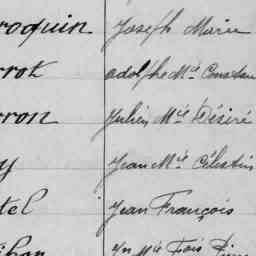 roquin Joseph Marie
rrot Adolphe Mie Constan
rron Julien Mie Désiré
y Jean Mie Célestin
tel Jean François
Mie Fois